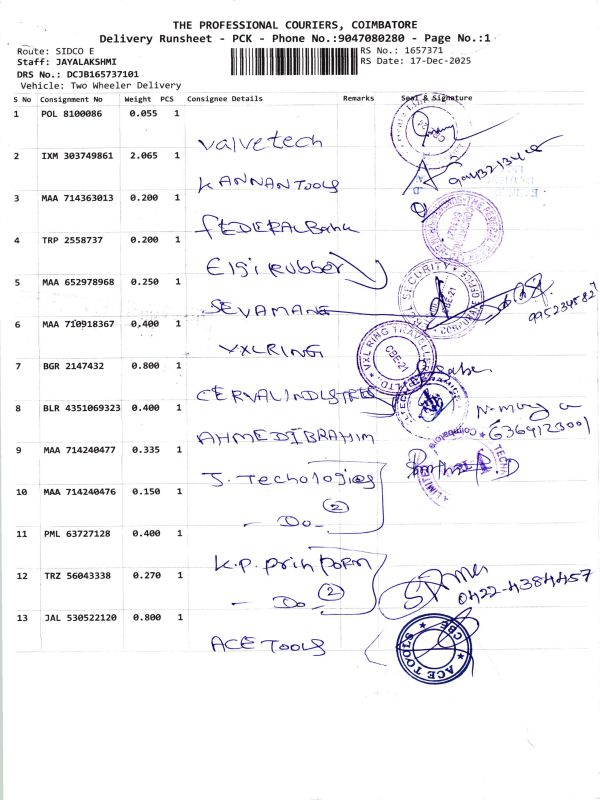 THE PROFESSIONAL COURIERS, COIMBATORE
Delivery Runsheet - PCK - Phone No.:9047080280 - Page No.:1
Route: SIDCO E
RS No.: 1657371
Staff: JAYALAKSHMI
RS Date: 17-Dec-2025
DRS No.: DCJB165737101
Vehicle: Two Wheeler Delivery
S No Consignment No Weight PCS Consignee Details Remarks Seal & Signature
1 POL 8100086 0.055 1
valvetech
2 IXM 303749861 2.065 1
KANNAN TOOLS
3 MAA 714363013 0.200 1
FEDERAL Bank
4 TRP 2558737 0.200 1
Elgi Rubber
5 MAA 652978968 0.250 1
SEVAMANE
6 MAA 710918367 0.400 1
VXL RING
VXL RING TRAVELLERS LTD. CBE-21
7 BGR 2147432 0.800 1
CERVAL INDUSTRES
8 BLR 4351069323 0.400 1
6369123001
AHMED IBRAHIM
9 MAA 714240477 0.335 1
J. Techologies
10 MAA 714240476 0.150 1
2
- Do -
11 PML 63727128 0.400 1
K.P. Prin Porm
12 TRZ 56043338 0.270 1
2
- Do -
0422-4384457
13 JAL 530522120 0.800 1
ACE TOOLS
ACE TOOLS CBE